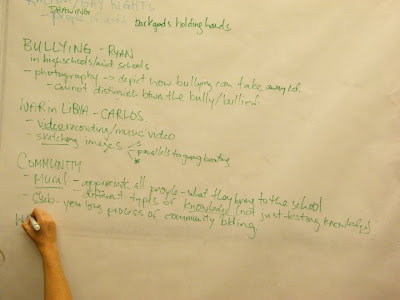 RIGHTS
DRAWING
backyards holding hands
BULLYING - RYAN
in high schools/mid schools
- photography → depict how bullying can take away id.
- cannot distinguish btwn the bully/bullied
WAR in LIBYA - CARLOS
- video recording/music video
- sketching images
parallels to gang
COMMUNITY
- Mural - appreciate all people - what they bring to the school
different types of knowledge (not just testing knowledge)
- Club - year long process of community